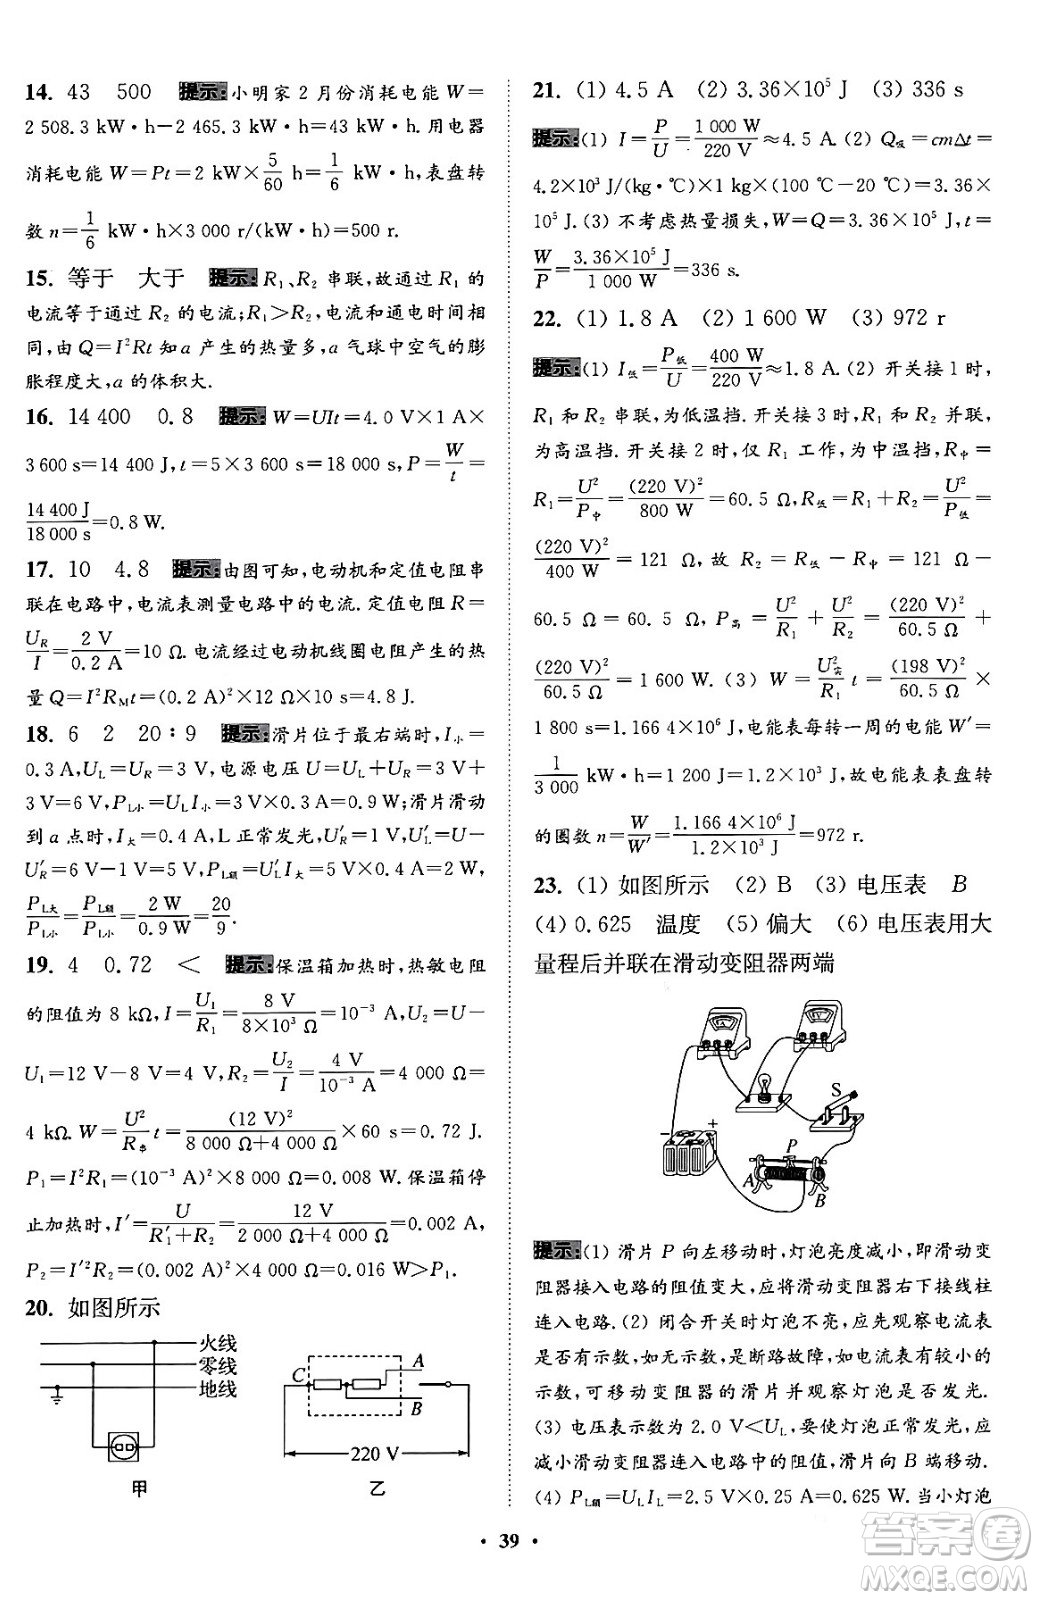 14. 43　500　提示:小明家 2 月份消耗电能 W=
2 508.3 kW·h−2 465.3 kW·h=43 kW·h.用电器
消耗电能 W=Pt=2 kW×5/60 h=1/6 kW·h,表盘转
数 n=1/6 kW·h×3 000 r/(kW·h)=500 r.
15. 等于　大于　提示:R₁、R₂ 串联,故通过 R₁ 的
电流等于通过 R₂ 的电流;R₁>R₂,电流和通电时间相
同,由 Q=I²Rt 知 a 产生的热量多,a 气球中空气的膨
胀程度大,a 的体积大.
16. 14 400　0.8　提示:W=UIt=4.0 V×1 A×
3 600 s=14 400 J,t=5×3 600 s=18 000 s,P=W/t=
14 400 J/18 000 s=0.8 W.
17. 10　4.8　提示:由图可知,电动机和定值电阻串
联在电路中,电流表测量电路中的电流.定值电阻 R=
U_R/I=2 V/0.2 A=10 Ω.电流经过电动机线圈电阻产生的热
量 Q=I²R_Mt=(0.2 A)²×12 Ω×10 s=4.8 J.
18. 6　2　20∶9　提示:滑片位于最右端时,I小=
0.3 A,U_L=U_R=3 V,电源电压 U=U_L+U_R=3 V+
3 V=6 V,P_L小=U_LI小=3 V×0.3 A=0.9 W;滑片滑动
到 a 点时,I大=0.4 A,L 正常发光,U′_R=1 V,U′_L=U−
U′_R=6 V−1 V=5 V,P_L额=U′_LI大=5 V×0.4 A=2 W,
P_L大/P_L小=P_L额/P_L小=2 W/0.9 W=20/9.
19. 4　0.72　<　提示:保温箱加热时,热敏电阻
的阻值为 8 kΩ,I=U₁/R₁=8 V/8×10³ Ω=10⁻³ A,U₂=U−
U₁=12 V−8 V=4 V,R₂=U₂/I=4 V/10⁻³ A=4 000 Ω=
4 kΩ.W=U²/R串 t=(12 V)²/8 000 Ω+4 000 Ω×60 s=0.72 J.
P₁=I²R₁=(10⁻³ A)²×8 000 Ω=0.008 W.保温箱停
止加热时,I′=U/R′₁+R₂=12 V/2 000 Ω+4 000 Ω=0.002 A,
P₂=I′²R₂=(0.002 A)²×4 000 Ω=0.016 W>P₁.
20. 如图所示
火线
零线
地线
甲
C A
B
220 V
乙
21. (1) 4.5 A　(2) 3.36×10⁵ J　(3) 336 s
提示:(1) I=P/U=1 000 W/220 V≈4.5 A.(2) Q吸=cmΔt=
4.2×10³ J/(kg·℃)×1 kg×(100 ℃−20 ℃)=3.36×
10⁵ J.(3) 不考虑热量损失,W=Q=3.36×10⁵ J,t=
W/P=3.36×10⁵ J/1 000 W=336 s.
22. (1) 1.8 A　(2) 1 600 W　(3) 972 r
提示:(1) I低=P低/U=400 W/220 V≈1.8 A.(2) 开关接 1 时,
R₁ 和 R₂ 串联,为低温挡.开关接 3 时,R₁ 和 R₂ 并联,
为高温挡.开关接 2 时,仅 R₁ 工作,为中温挡,R中=
R₁=U²/P中=(220 V)²/800 W=60.5 Ω,R低=R₁+R₂=U²/P低=
(220 V)²/400 W=121 Ω,故 R₂=R低−R中=121 Ω−
60.5 Ω=60.5 Ω,P高=U²/R₁+U²/R₂=(220 V)²/60.5 Ω+
(220 V)²/60.5 Ω=1 600 W.(3) W=U²实/R₁ t=(198 V)²/60.5 Ω×
1 800 s=1.166 4×10⁶ J,电能表每转一周的电能 W′=
1/3 000 kW·h=1 200 J=1.2×10³ J,故电能表表盘转
的圈数 n=W/W′=1.166 4×10⁶ J/1.2×10³ J=972 r.
23. (1) 如图所示　(2) B　(3) 电压表　B
(4) 0.625　温度　(5) 偏大　(6) 电压表用大
量程后并联在滑动变阻器两端
S
− +
P
A B
提示:(1) 滑片 P 向左移动时,灯泡亮度减小,即滑动变
阻器接入电路的阻值变大,应将滑动变阻器右下接线柱
连入电路.(2) 闭合开关时灯泡不亮,应先观察电流表
是否有示数,如无示数,可能出现故障,如电流表有较小的
示数,可移动变阻器的滑片并观察灯泡是否发光.
(3) 电压表示数为 2.0 V<U_L,要使灯泡正常发光,应
减小滑动变阻器连入电路中的阻值,滑片向 B 端移动.
(4) P_L额=U_LI_L=2.5 V×0.25 A=0.625 W.当小灯泡
·39·
答案卷
MXQE.COM